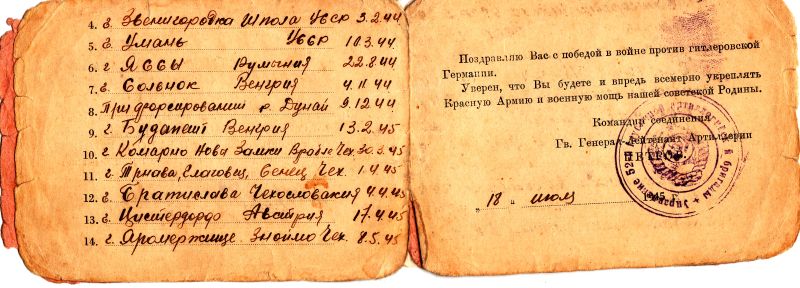 4. г. Звенигородка Шпола Усср 3.2.44
5. г. Умань Усср 10.3.44
6. г Яссы Румыния 22.8.44
7. г. Сольнок Венгрия 4.11 44
8. При форсировании р. Дунай 9.12.44
9. г. Будапешт Венгрия 13.2.45
10. г. Комарно Нова Замки Врабле Чех. 30.3.45
11. г. Трнава, Глаговец, Сенец Чех. 1.4.45
12. г. Братислава Чехословакия 4.4.45
13. г. Цистердорф Австрия 17.4.45
14. г. Яромержице Зноймо Чех. 8.5.45
Поздравляю Вас с победой в войне против гитлеровской
Германии.
Уверен, что Вы будете и впредь всемерно укреплять
Красную Армию и военную мощь нашей советской Родины.
Командир соединения
Гв. Генерал-лейтенант Артиллерии
„18" июля 45 г.